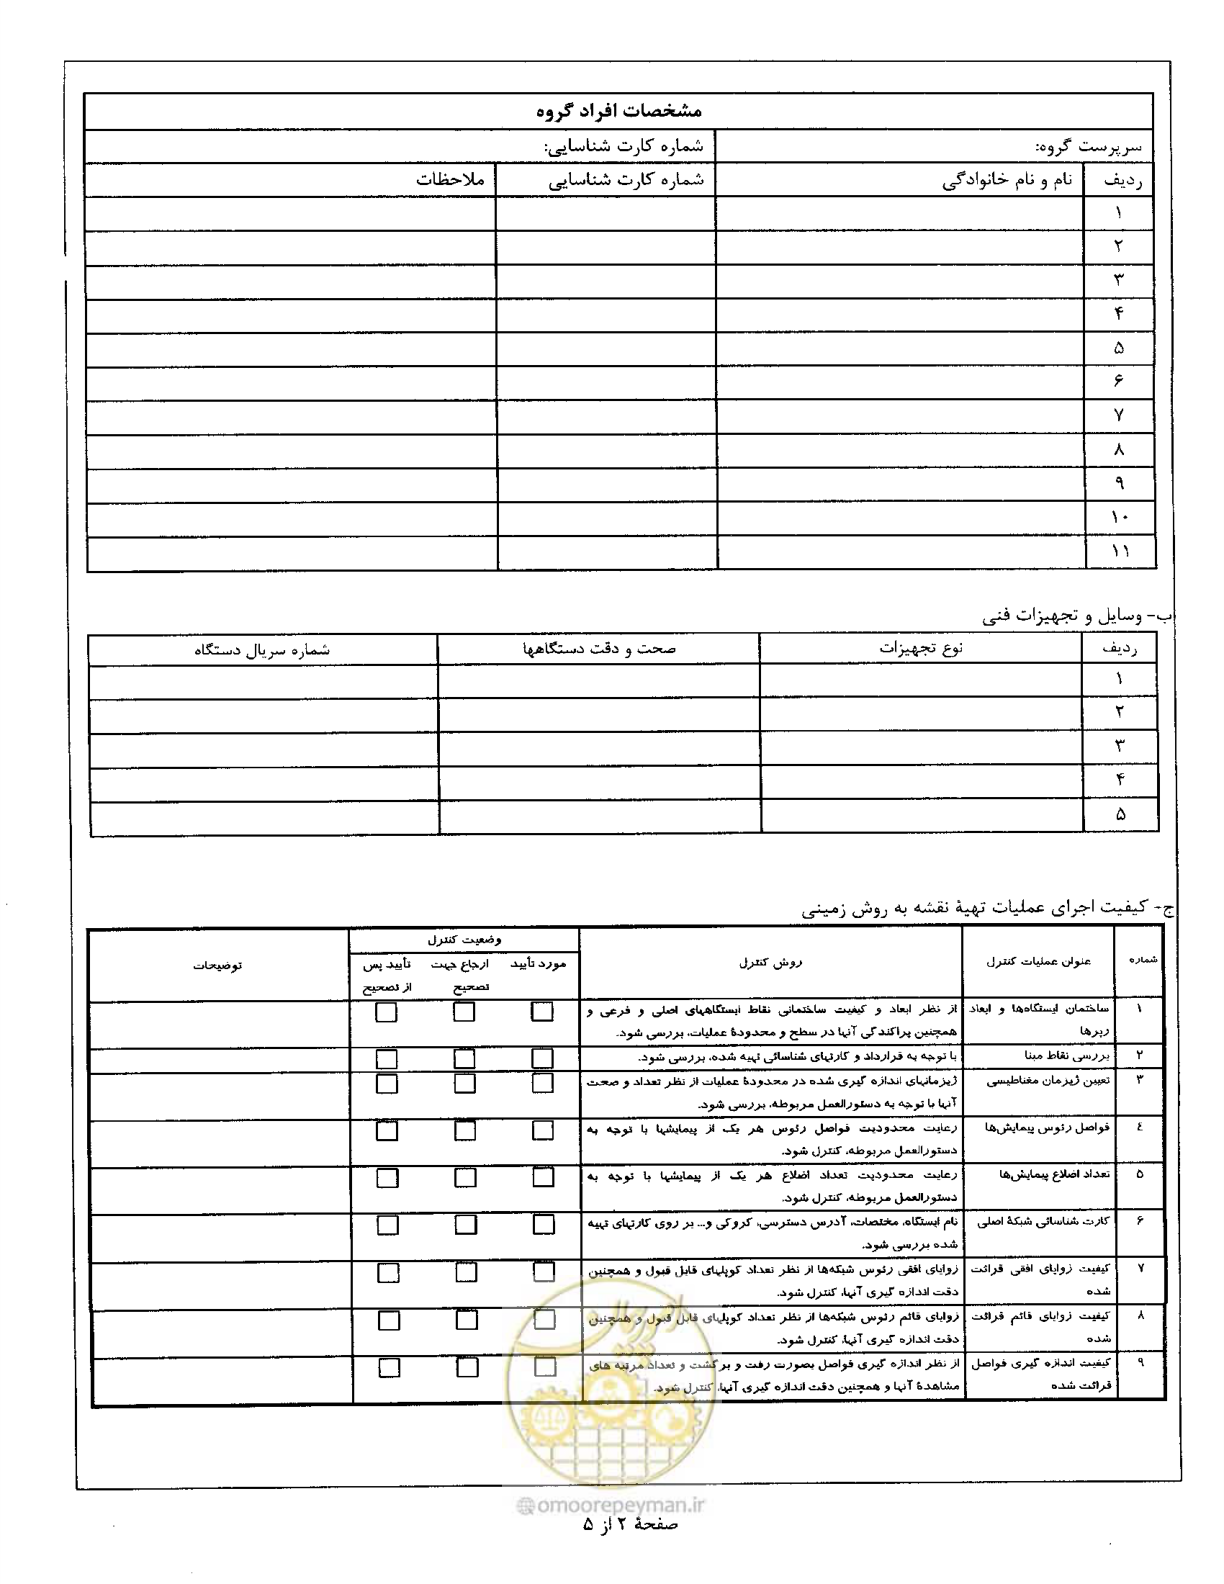 مشخصات افراد گروه
سرپرست گروه: شماره کارت شناسایی:
ردیف نام و نام خانوادگی شماره کارت شناسایی ملاحظات
۱
۲
۳
۴
۵
۶
۷
۸
۹
۱۰
۱۱
ب- وسایل و تجهیزات فنی
ردیف نوع تجهیزات صحت و دقت دستگاهها شماره سریال دستگاه
۱
۲
۳
۴
۵
ج- کیفیت اجرای عملیات تهیهٔ نقشه به روش زمینی
شماره عنوان عملیات کنترل روش کنترل وضعیت کنترل توضیحات
مورد تأیید ارجاع جهت تأیید پس
تصحیح از تصحیح
۱ ساختمان ایستگاهها و ابعاد از نظر ابعاد و کیفیت ساختمانی نقاط ایستگاههای اصلی و فرعی و
رپرها همچنین پراکندگی آنها در سطح و محدودهٔ عملیات، بررسی شود.
۲ بررسی نقاط مبنا با توجه به قرارداد و کارتهای شناسائی تهیه شده، بررسی شود.
۳ تعیین ژیزمان مغناطیسی ژیزمانهای اندازه گیری شده در محدودهٔ عملیات از نظر تعداد و صحت
آنها با توجه به دستورالعمل مربوطه، بررسی شود.
٤ فواصل رئوس پیمایش‌ها رعایت محدودیت فواصل رئوس هر یک از پیمایشها با توجه به
دستورالعمل مربوطه، کنترل شود.
۵ تعداد اضلاع پیمایش‌ها رعایت محدودیت تعداد اضلاع هر یک از پیمایشها با توجه به
دستورالعمل مربوطه، کنترل شود.
۶ کارت شناسائی شبکهٔ اصلی نام ایستگاه، مختصات، آدرس دسترسی، کروکی و... بر روی کارتهای تهیه
شده بررسی شود.
۷ کیفیت زوایای افقی قرائت زوایای افقی رئوس شبکه‌ها از نظر تعداد کوپلهای قابل قبول و همچنین
شده دقت اندازه گیری آنها، کنترل شود.
۸ کیفیت زوایای قائم قرائت زوایای قائم رئوس شبکه‌ها از نظر تعداد کوپلهای قابل قبول و همچنین
شده دقت اندازه گیری آنها، کنترل شود.
۹ کیفیت اندازه گیری فواصل از نظر اندازه گیری فواصل بصورت رفت و برگشت و تعداد مرتبه های
قرائت شده مشاهدهٔ آنها و همچنین دقت اندازه گیری آنها، کنترل شود.
امور پیمان
@omoorepeyman.ir
صفحهٔ ۲ از ۵